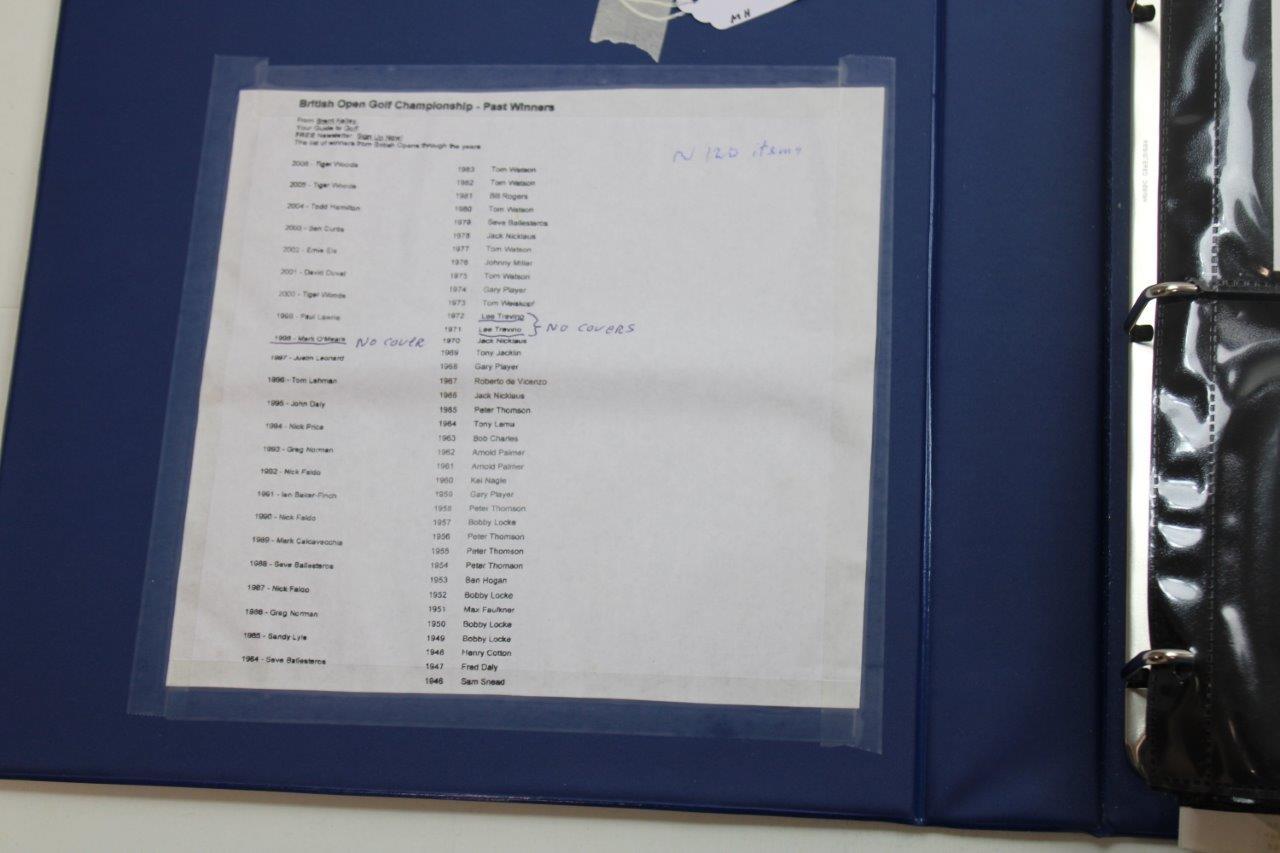 MN
British Open Golf Championship - Past Winners
From Brent Kelley,
Your Guide to Golf.
FREE Newsletter. Sign Up Now!
The list of winners from British Opens through the years
N 120 items
2006 - Tiger Woods
2005 - Tiger Woods
2004 - Todd Hamilton
2003 - Ben Curtis
2002 - Ernie Els
2001 - David Duval
2000 - Tiger Woods
1999 - Paul Lawrie
1998 - Mark O'Meara NO COVER
1997 - Justin Leonard
1996 - Tom Lehman
1995 - John Daly
1994 - Nick Price
1993 - Greg Norman
1992 - Nick Faldo
1991 - Ian Baker-Finch
1990 - Nick Faldo
1989 - Mark Calcavecchia
1988 - Seve Ballesteros
1987 - Nick Faldo
1986 - Greg Norman
1985 - Sandy Lyle
1984 - Seve Ballesteros
1983 Tom Watson
1982 Tom Watson
1981 Bill Rogers
1980 Tom Watson
1979 Seve Ballesteros
1978 Jack Nicklaus
1977 Tom Watson
1976 Johnny Miller
1975 Tom Watson
1974 Gary Player
1973 Tom Weiskopf
1972 Lee Trevino
1971 Lee Trevino
NO COVERS
1970 Jack Nicklaus
1969 Tony Jacklin
1968 Gary Player
1967 Roberto de Vicenzo
1966 Jack Nicklaus
1965 Peter Thomson
1964 Tony Lema
1963 Bob Charles
1962 Arnold Palmer
1961 Arnold Palmer
1960 Kel Nagle
1959 Gary Player
1958 Peter Thomson
1957 Bobby Locke
1956 Peter Thomson
1955 Peter Thomson
1954 Peter Thomson
1953 Ben Hogan
1952 Bobby Locke
1951 Max Faulkner
1950 Bobby Locke
1949 Bobby Locke
1948 Henry Cotton
1947 Fred Daly
1946 Sam Snead